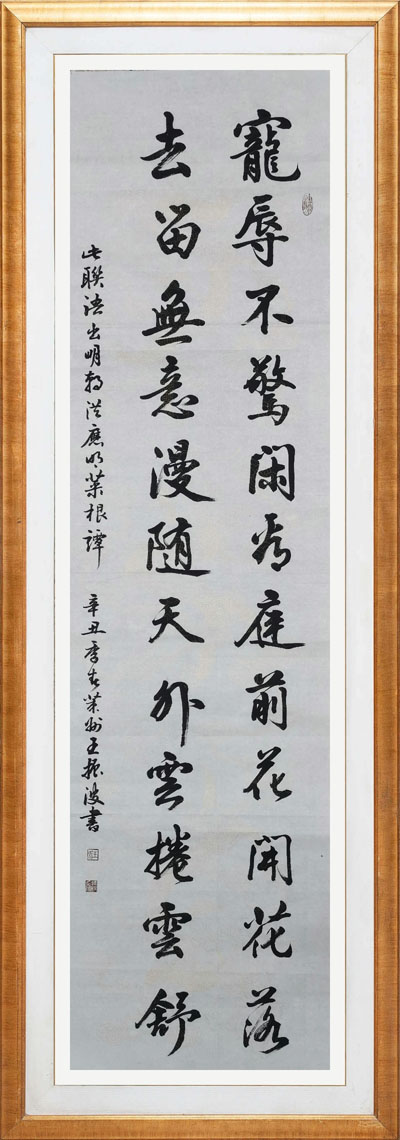 寵辱不驚閑看庭前花開花落
去留無意漫隨天外雲捲雲舒
此聯語出明朝洪應明菜根譚 辛丑季春萊州王振波書